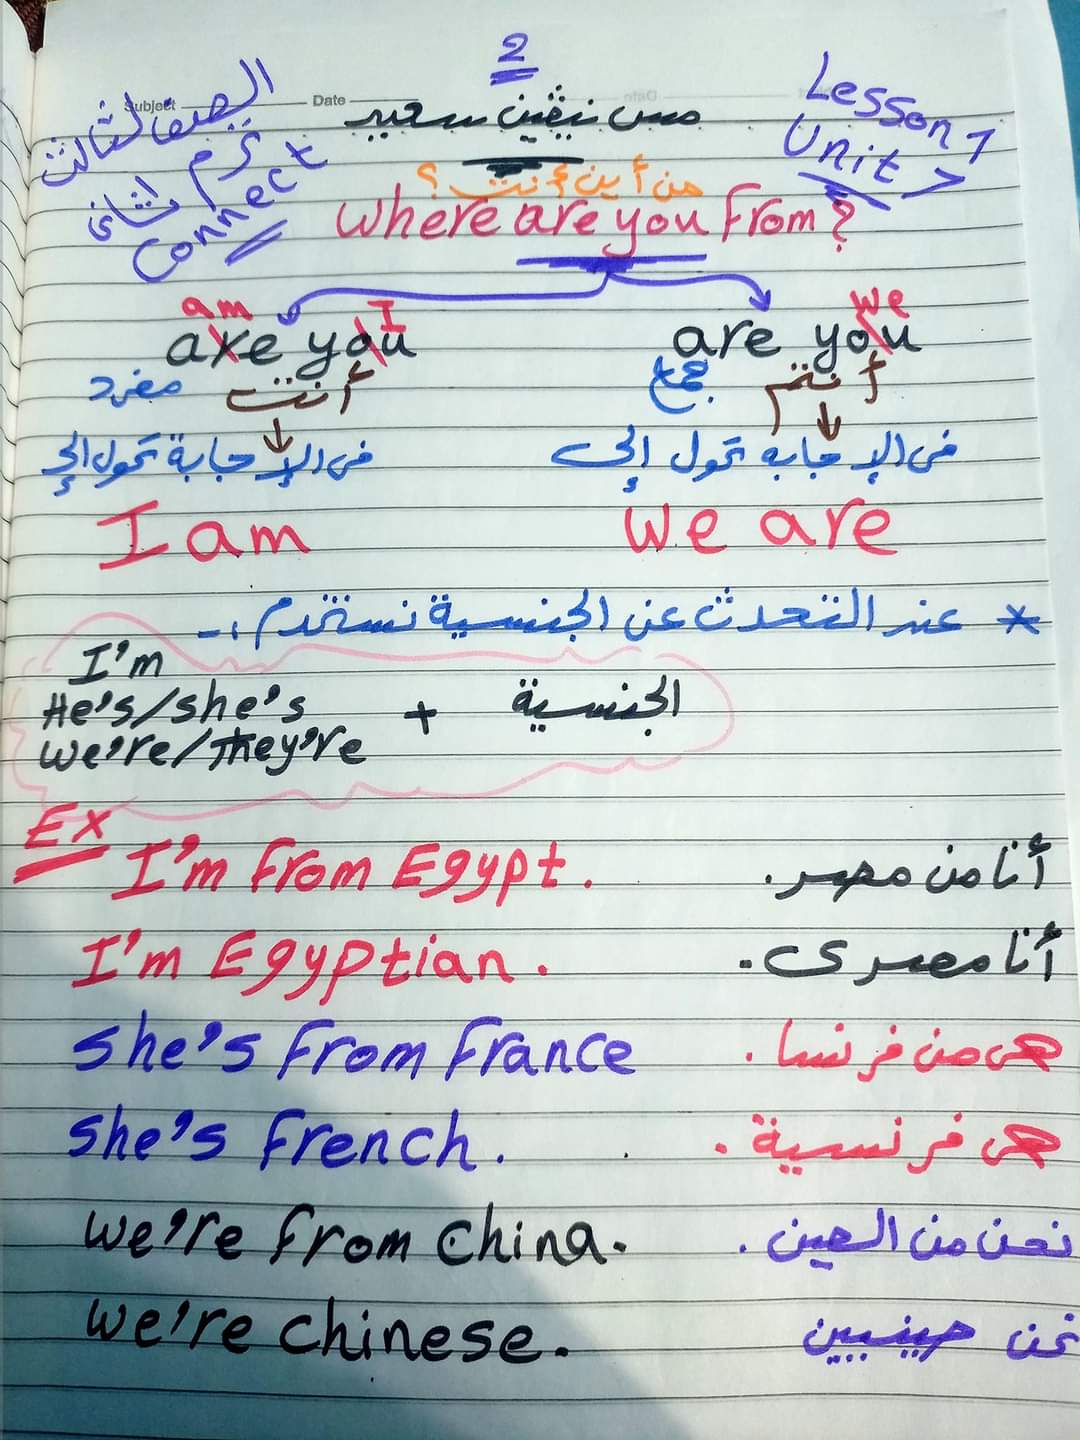 2
Subject Date
الصف الثالث
ترم تانى
Connect
مس نيفين سعيد
Lesson 1
Unit 7
من أين أنت؟
Where are you from?
am I
are you
we
are you
أنت مفرد
أنتم جمع
فى الإجابة تحول إلى
فى الإجابه تحول إلى
I am
we are
* عند التحدث عن الجنسية نستخدم :-
I'm
He's/she's
we're/They're
+ الجنسية
Ex
I'm from Egypt. أنا من مصر.
I'm Egyptian. أنا مصرى.
she's from France هى من فرنسا.
she's French. هى فرنسية.
we're from China. نحن من الصين.
we're chinese. نحن صينيين